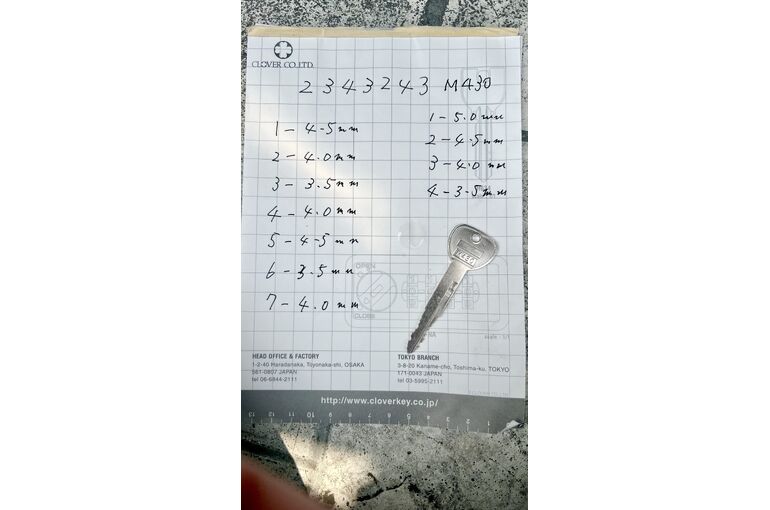 CLOVER CO.LTD.
2343243 M430
1-4.5mm
2-4.0mm
3-3.5mm
4-4.0mm
5-4.5mm
6-3.5mm
7-4.0mm
1-5.0mm
2-4.5mm
3-4.0mm
4-3.5mm
OPEN
CLOSE
scale : 1/1
HEAD OFFICE & FACTORY
1-2-40 Haradanaka, Toyonaka-shi, OSAKA
561-0807 JAPAN
tel 06-6844-2111
TOKYO BRANCH
3-8-20 Kaname-cho, Toshima-ku, TOKYO
171-0043 JAPAN
tel 03-5995-2111
http://www.cloverkey.co.jp/
13 12 11 10 9 8 7 6 5 4 3 2 1